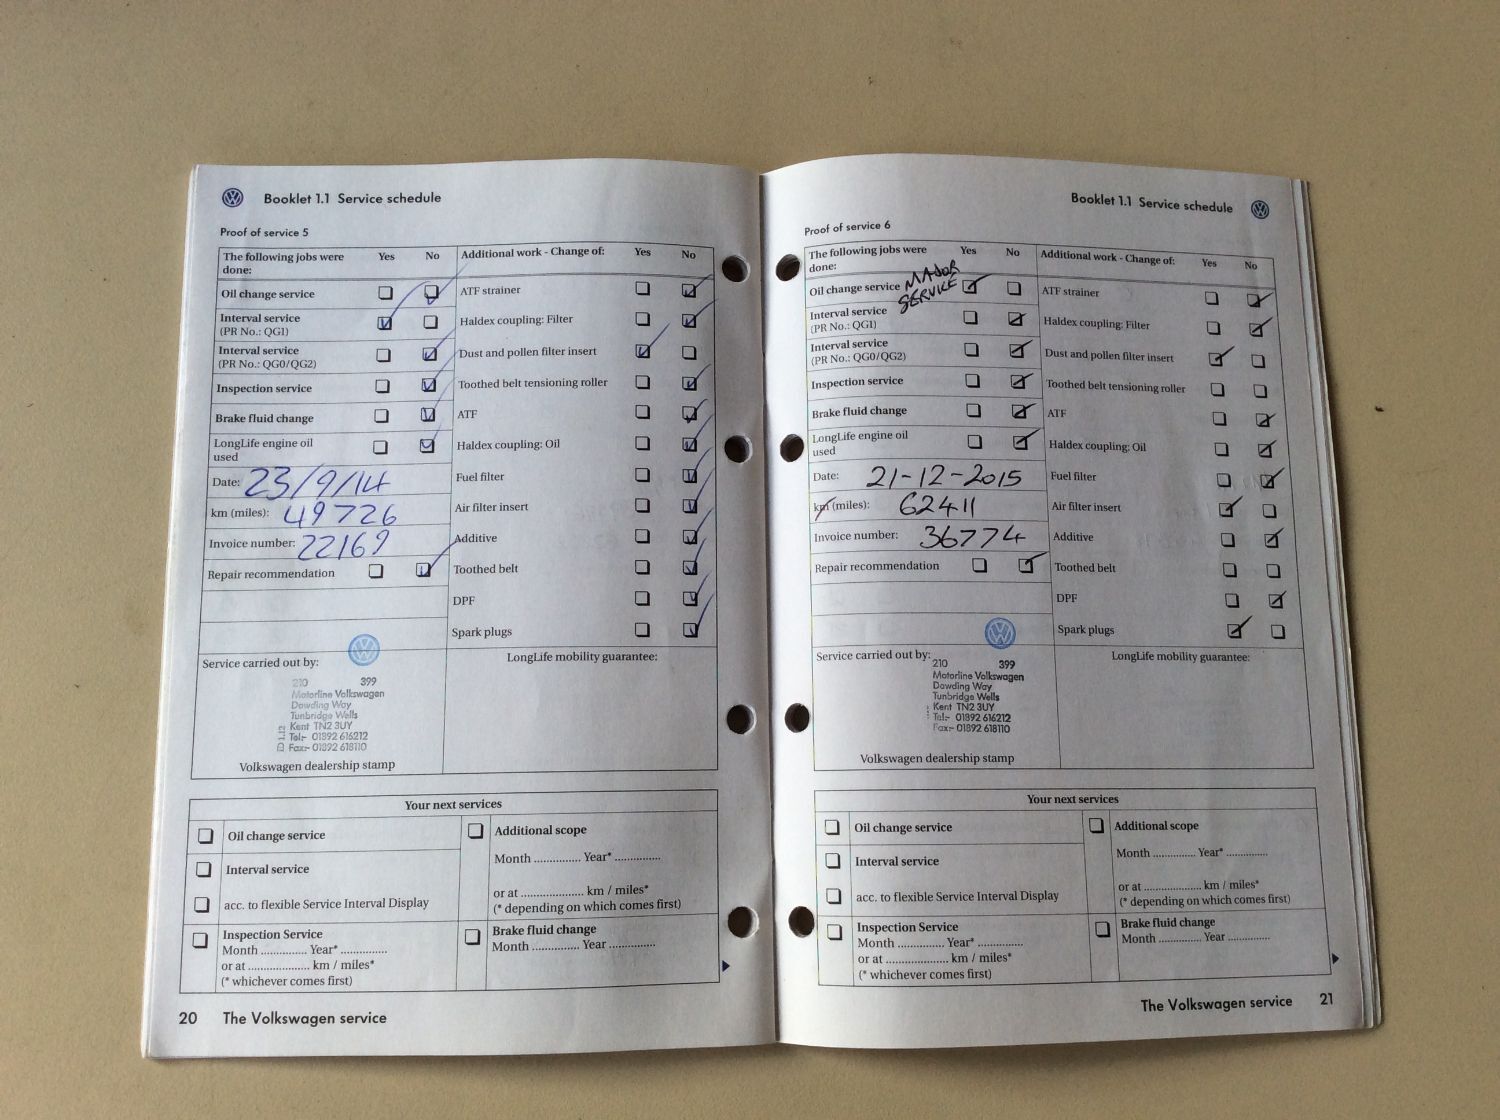 Booklet 1.1 Service schedule
Proof of service 5
The following jobs were done: Yes No
Oil change service
Interval service
(PR No.: QG1)
Interval service
(PR No.: QG0/QG2)
Inspection service
Brake fluid change
LongLife engine oil
used
Date: 23/9/14
km (miles): 49726
Invoice number: 22169
Repair recommendation
Service carried out by:
210 399
Motorline Volkswagen
Dowding Way
Tunbridge Wells
Kent TN2 3UY
Tel:- 01892 616212
Fax:- 01892 618110
Volkswagen dealership stamp
Additional work - Change of: Yes No
ATF strainer
Haldex coupling: Filter
Dust and pollen filter insert
Toothed belt tensioning roller
ATF
Haldex coupling: Oil
Fuel filter
Air filter insert
Additive
Toothed belt
DPF
Spark plugs
LongLife mobility guarantee:
Your next services
Oil change service
Interval service
acc. to flexible Service Interval Display
Inspection Service
Month ............... Year* ...............
or at .................... km / miles*
(* whichever comes first)
Additional scope
Month ............... Year* ...............
or at .................... km / miles*
(* depending on which comes first)
Brake fluid change
Month ............... Year ...............
20 The Volkswagen service
Booklet 1.1 Service schedule
Proof of service 6
The following jobs were Yes No
done:
Oil change service MAJOR
SERVICE
Interval service
(PR No.: QG1)
Interval service
(PR No.: QG0/QG2)
Inspection service
Brake fluid change
LongLife engine oil
used
Date: 21-12-2015
km (miles): 62411
Invoice number: 36774
Repair recommendation
Service carried out by:
210 399
Motorline Volkswagen
Dowding Way
Tunbridge Wells
Kent TN2 3UY
Tel:- 01892 616212
Fax:- 01892 618110
Volkswagen dealership stamp
Additional work - Change of: Yes No
ATF strainer
Haldex coupling: Filter
Dust and pollen filter insert
Toothed belt tensioning roller
ATF
Haldex coupling: Oil
Fuel filter
Air filter insert
Additive
Toothed belt
DPF
Spark plugs
LongLife mobility guarantee:
Your next services
Oil change service
Interval service
acc. to flexible Service Interval Display
Inspection Service
Month ............... Year* ...............
or at .................... km / miles*
(* whichever comes first)
Additional scope
Month ............... Year* ...............
or at .................... km / miles*
(* depending on which comes first)
Brake fluid change
Month ............... Year ...............
The Volkswagen service 21